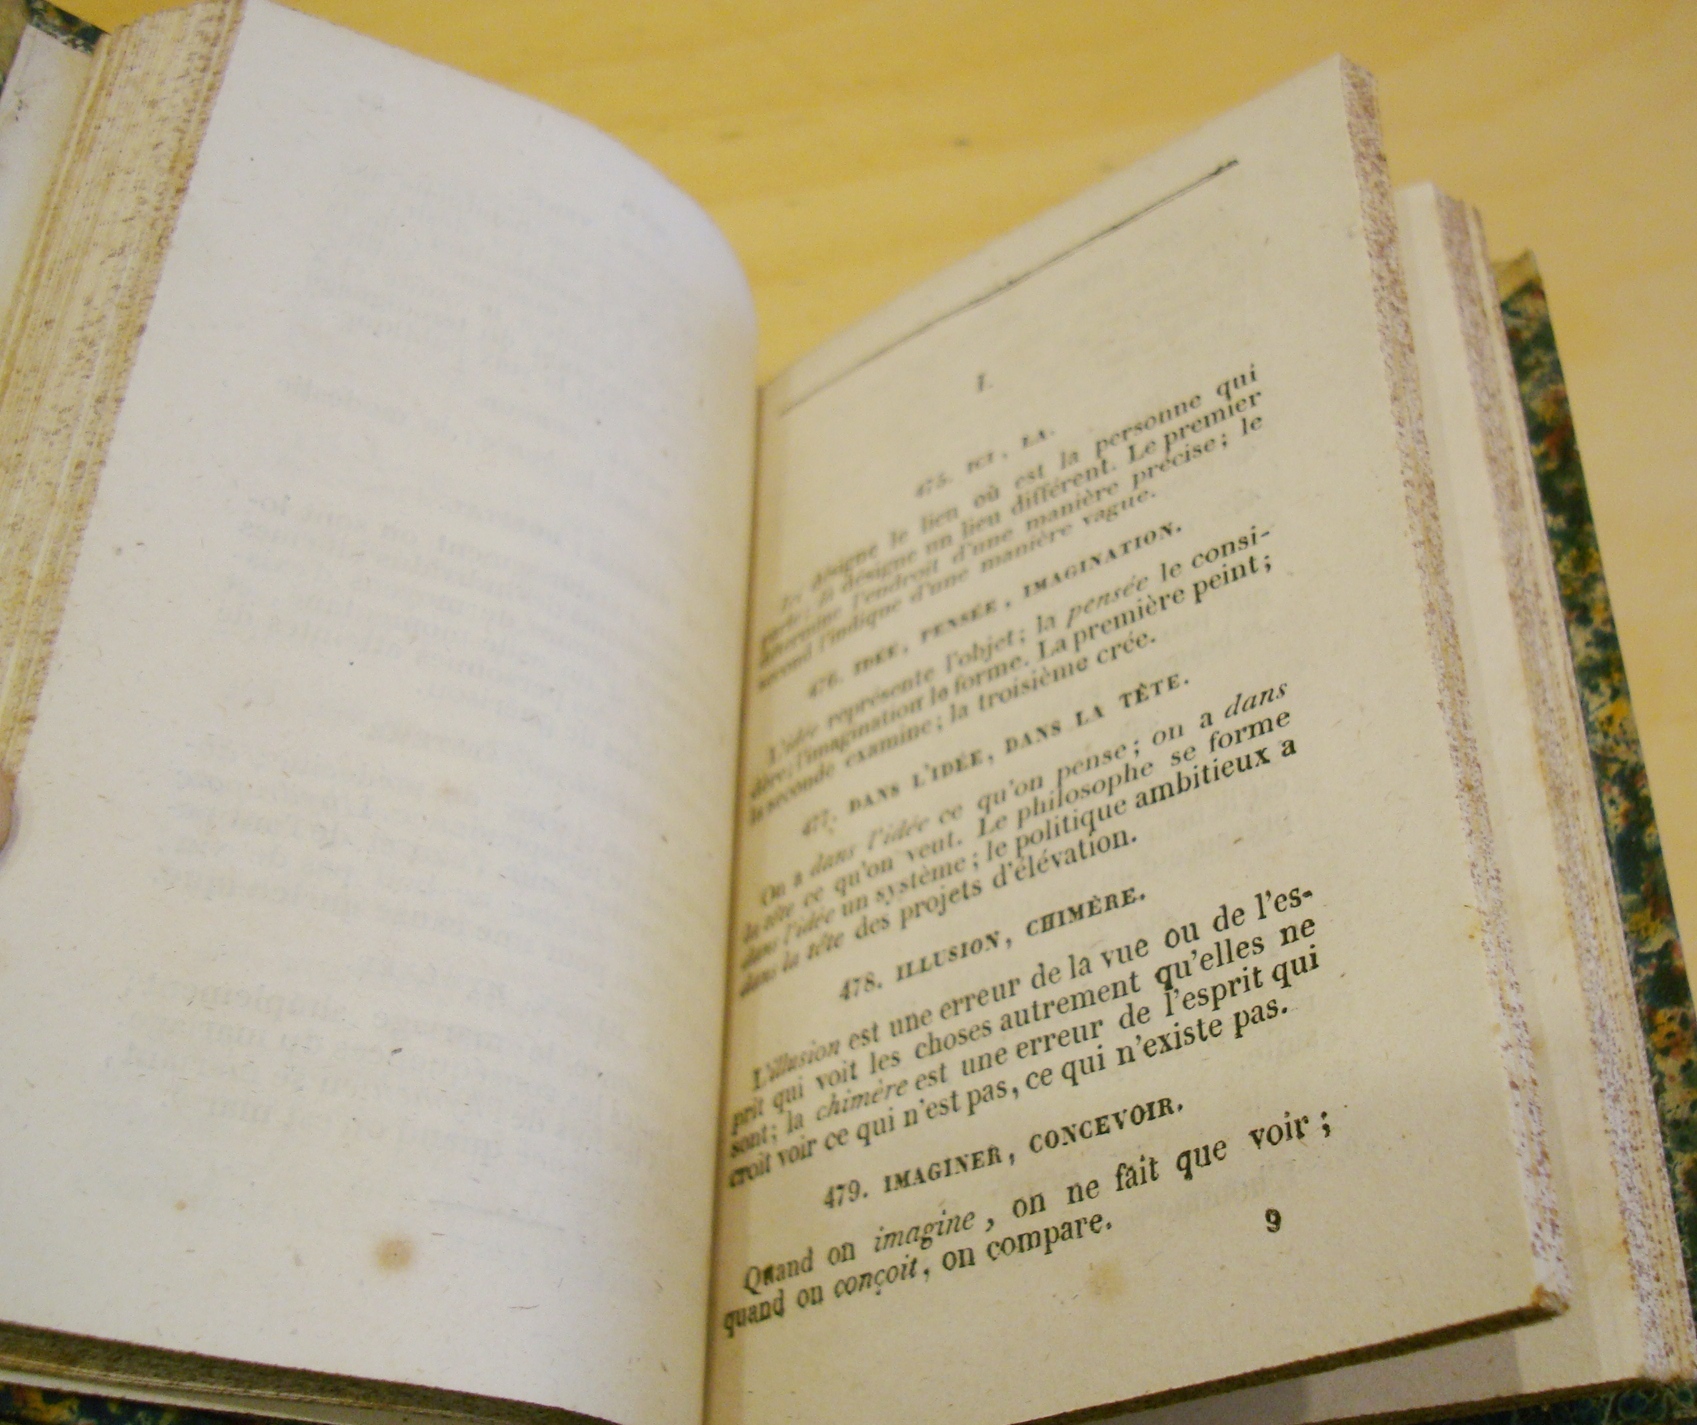 I.
475. ICI, LA.
Ici désigne le lieu où est la personne qui
parle; là désigne un lieu différent. Le premier
détermine l'endroit d'une manière précise; le
second l'indique d'une manière vague.
476. IDÉE, PENSÉE, IMAGINATION.
L'idée représente l'objet; la pensée le consi-
dère; l'imagination le forme. La première peint;
la seconde examine; la troisième crée.
477. DANS L'IDÉE, DANS LA TÊTE.
On a dans l'idée ce qu'on pense; on a dans
la tête ce qu'on veut. Le philosophe se forme
dans l'idée un système; le politique ambitieux a
dans la tête des projets d'élévation.
478. ILLUSION, CHIMÈRE.
L'illusion est une erreur de la vue ou de l'es-
prit qui voit les choses autrement qu'elles ne
sont; la chimère est une erreur de l'esprit qui
croit voir ce qui n'est pas, ce qui n'existe pas.
479. IMAGINER, CONCEVOIR.
Quand on imagine, on ne fait que voir;
quand on conçoit, on compare.
9